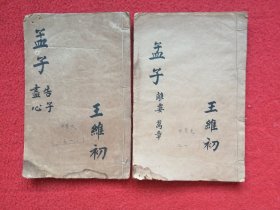 孟子
告子
盡心
王維初
孟子
離婁 萬章
王維初